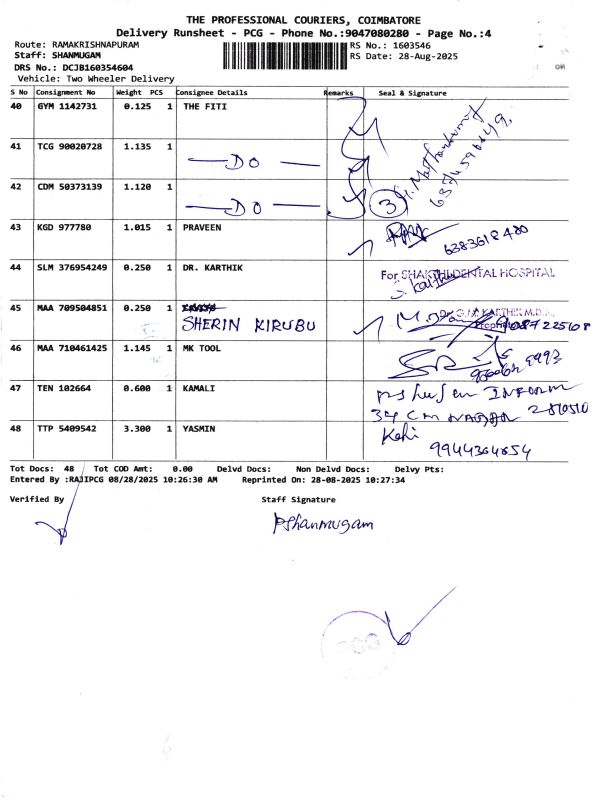 THE PROFESSIONAL COURIERS, COIMBATORE
Delivery Runsheet - PCG - Phone No.:9047080280 - Page No.:4
Route: RAMAKRISHNAPURAM RS No.: 1603546
Staff: SHANMUGAM RS Date: 28-Aug-2025
DRS No.: DCJB160354604
Vehicle: Two Wheeler Delivery
S No Consignment No Weight PCS Consignee Details Remarks Seal & Signature
40 GYM 1142731 0.125 1 THE FITI
41 TCG 90020728 1.135 1 DO
42 CDM 50373139 1.120 1 DO 3
43 KGD 977780 1.015 1 PRAVEEN 6383618480
44 SLM 376954249 0.250 1 DR. KARTHIK For SHAKTHI DENTAL HOSPITAL
45 MAA 709504851 0.250 1 SHERIN KIRUBU
46 MAA 710461425 1.145 1 MK TOOL
47 TEN 102664 0.600 1 KAMALI INFORM
34 CM
48 TTP 5409542 3.300 1 YASMIN
9944364654
Tot Docs: 48 Tot COD Amt: 0.00 Delvd Docs: Non Delvd Docs: Delvy Pts:
Entered By :RAJIPCG 08/28/2025 10:26:30 AM Reprinted On: 28-08-2025 10:27:34
Verified By Staff Signature
PShanmugam
PCG